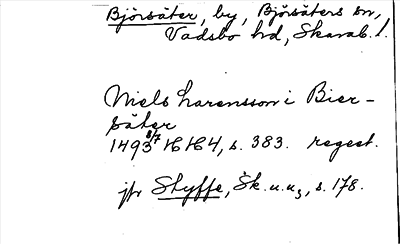 Björsäter, by, Björsäters sn,
Vadsbo hd, Skarab. l.
Niels Larensson i Bier-
säter
1493 8/7 HH4, s. 383. regest.
jfr Styffe, Sk.u.u3, s. 178.